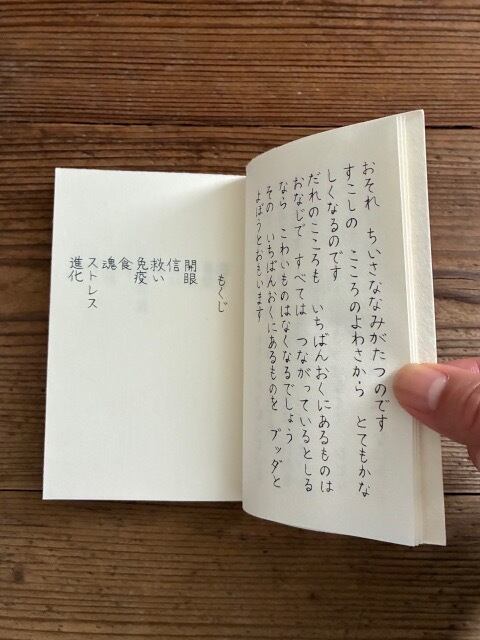 おそれ　ちいさななみがたつのです
すこしの　こころのよわさから　とてもかな
しくなるのです
だれのこころも　いちばんおくにあるものは
おなじで　すべては　つながっているとしる
なら　こわいものはなくなるでしょう
その　いちばんおくにあるものを　ブッダと
よぼうとおもいます
もくじ
開眼
信
救い
免疫
食
魂
ストレス
進化